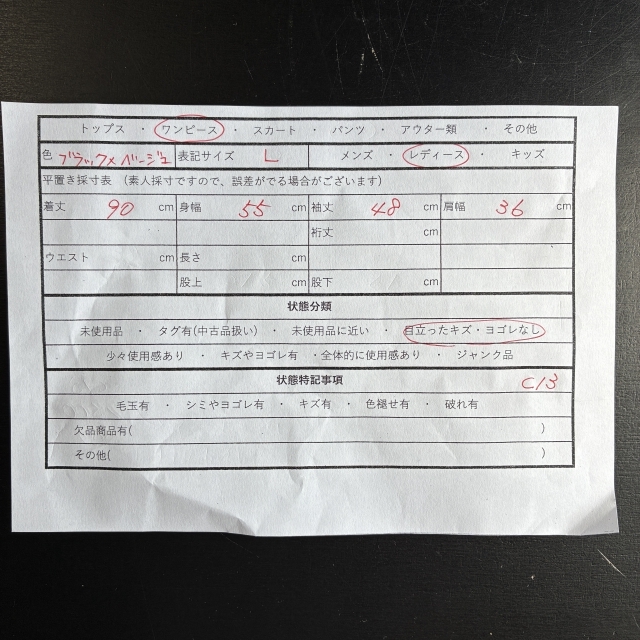 トップス ・ ワンピース ・ スカート ・ パンツ ・ アウター類 ・ その他
色 ブラック×ベージュ 表記サイズ L メンズ ・ レディース ・ キッズ
平置き採寸表 (素人採寸ですので、誤差がでる場合がございます)
着丈 90 cm 身幅 55 cm 袖丈 48 cm 肩幅 36 cm
裄丈 cm
ウエスト cm 長さ cm
股上 cm 股下 cm
状態分類
未使用品 ・ タグ有(中古品扱い) ・ 未使用品に近い ・ 目立ったキズ・ヨゴレなし
少々使用感あり ・ キズやヨゴレ有 ・全体的に使用感あり ・ ジャンク品
状態特記事項 C13
毛玉有 ・ シミやヨゴレ有 ・ キズ有 ・ 色褪せ有 ・ 破れ有
欠品商品有( )
その他( )